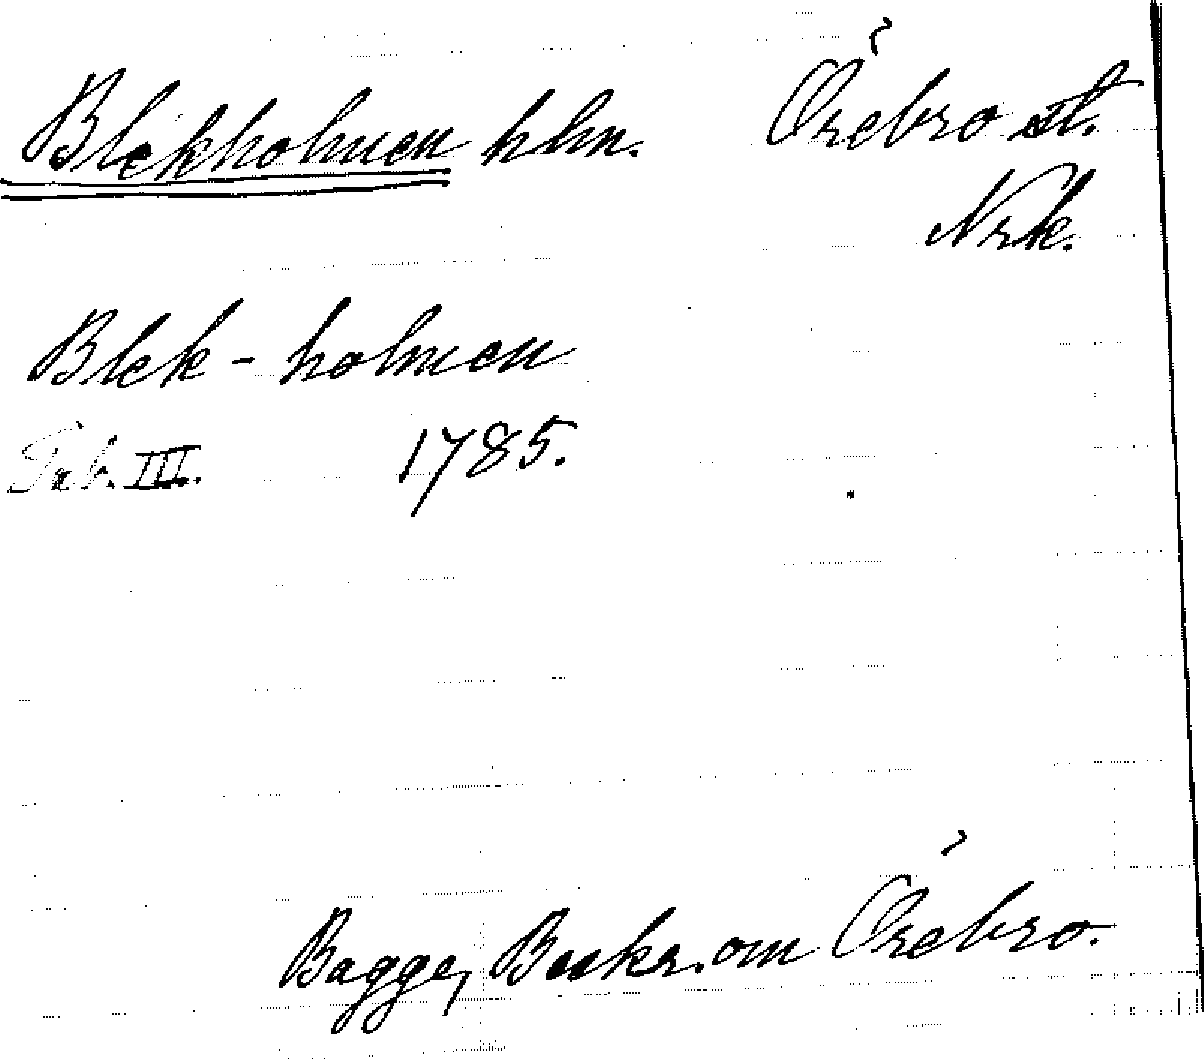 Blekholmen hlm. Örebro st.
Nrk.
Blek-holmen
Tab. III. 1785.
Bagge, Beskr. om Örebro.